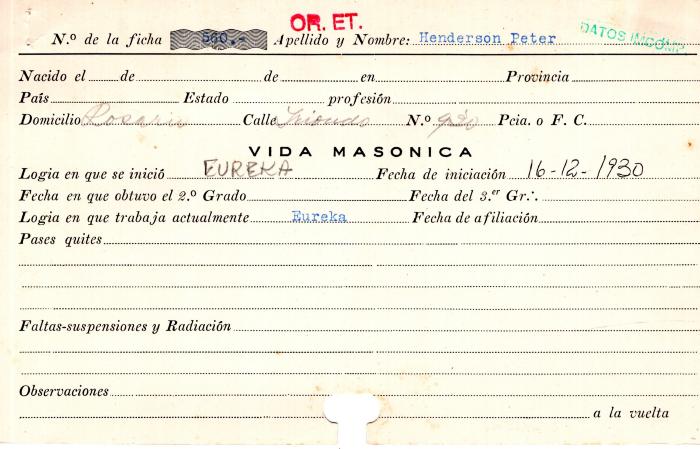 OR. ET.
N.º de la ficha 560.- Apellido y Nombre: Henderson Peter DATOS INCOMP.
Nacido el de de en Provincia
País Estado profesión
Domicilio Rosario Calle Iriondo N.º 930 Pcia. o F. C.
VIDA MASONICA
Logia en que se inició EUREKA Fecha de iniciación 16-12-1930
Fecha en que obtuvo el 2.º Grado Fecha del 3.er Gr∴
Logia en que trabaja actualmente Eureka Fecha de afiliación
Pases quites
Faltas-suspensiones y Radiación
Observaciones
a la vuelta